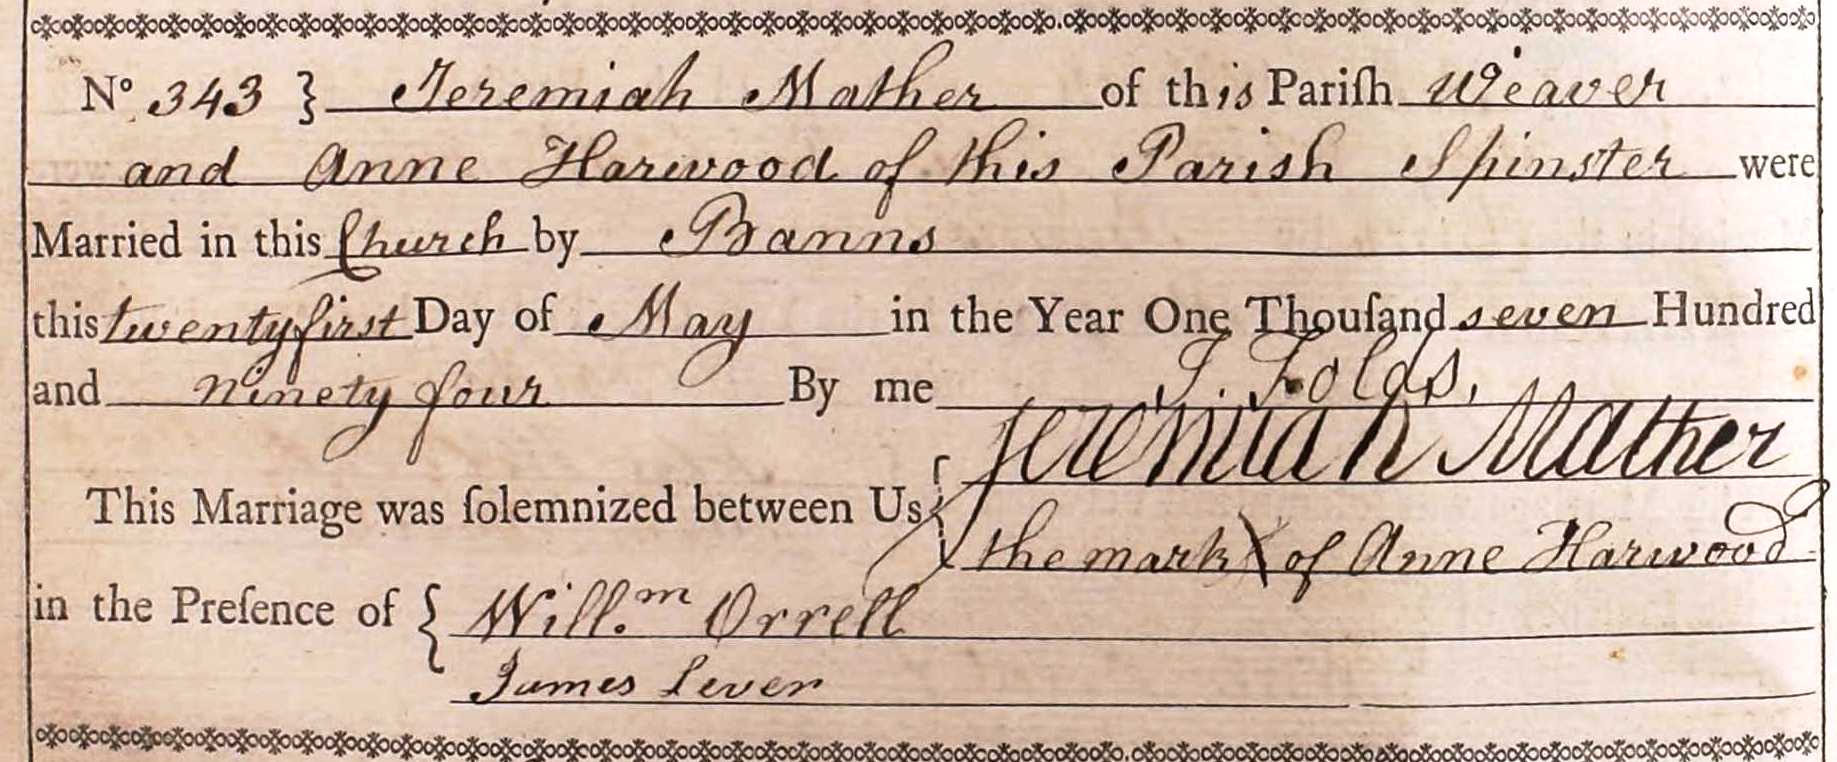 No. 343 } Jeremiah Mather of this Pariſh Weaver
and Anne Harwood of this Parish Spinster were
Married in this Church by Banns
this twenty first Day of May in the Year One Thouſand seven Hundred
and Ninety four By me J. Folds,
Jeremiah Mather
This Marriage was ſolemnized between Us {
the mark X of Anne Harwood
in the Preſence of { Will.m Orrell
James Lever